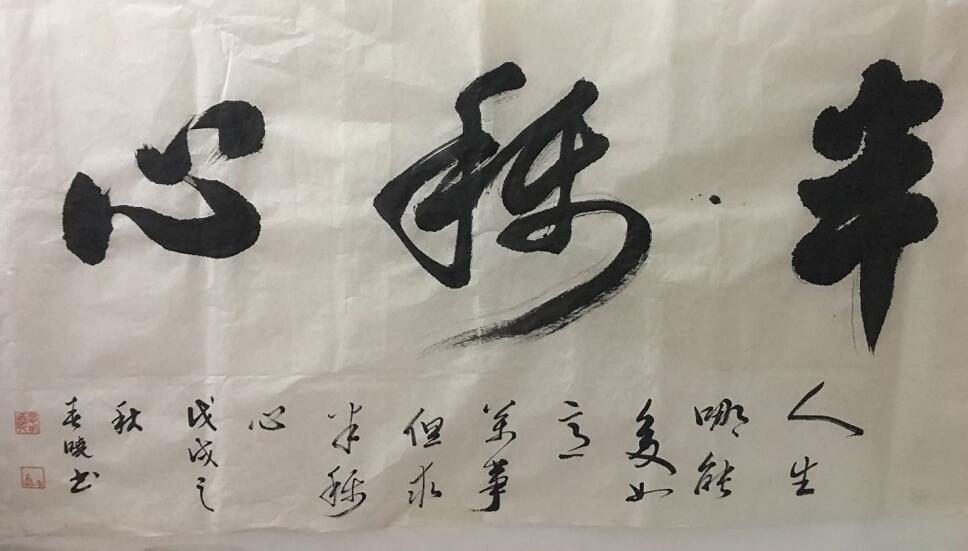 半称心
人生
哪能
多如
意
万事
但求
半称
心
戊戌之
秋
春晓书